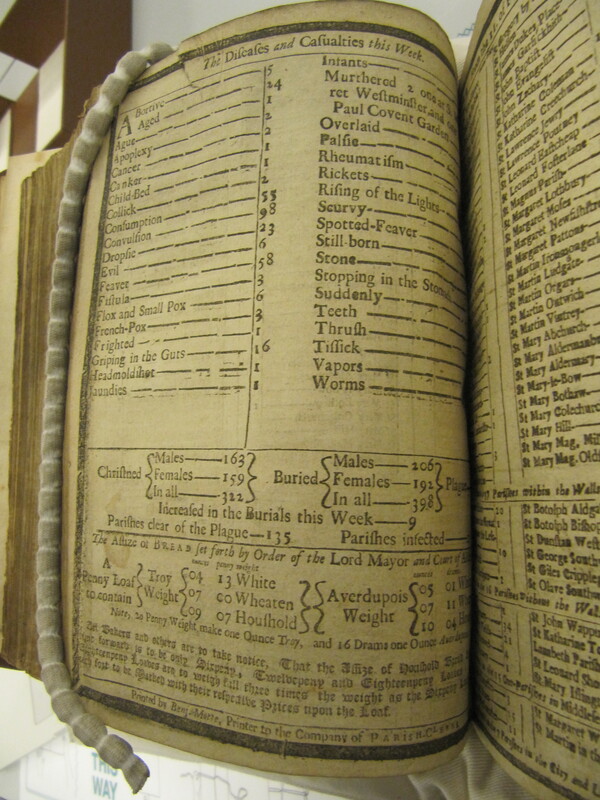 The Diseases and Casualties this Week.
Abortive 5
Aged 24
Ague 1
Apoplexy 2
Cancer 2
Canker 1
Child-Bed 1
Collick 2
Consumption 55
Convulsion 98
Dropsie 23
Evil 6
Feaver 58
Fistula 3
Flox and Small Pox 6
French-Pox 3
Frighted 1
Griping in the Guts 16
Headmoldshot 1
Jaundies 1
Infants
Murthered 2 one at
ret Westminster, and
Paul Covent Garden
Overlaid
Palsie
Rheumatism
Rickets
Rising of the Lights
Scurvy
Spotted-Feaver
Still-born
Stone
Stopping in the Stomach
Suddenly
Teeth
Thrush
Tissick
Vapors
Worms
Christned { Males 163 } Buried { Males 206 } Plague
Females 159 Females 192
In all 322 In all 398
Increased in the Burials this Week 9
Parishes clear of the Plague 135 Parishes infected
The Assize of BREAD set forth by Order of the Lord Mayor and Court of
A Penny Loaf to contain { Troy Weight { 04 13 White } Averdupois Weight { 05 01
07 00 Wheaten 07 11
09 07 Houshold 10 04
Note, 20 Penny Weight make one Ounce Troy, and 16 Drams one Ounce Averdupois
All Bakers and others are to take notice, That the Assize of Houshold Bread
forward is to be only Sixpeny, Twelvepeny and Eighteenpeny Loaves
Eighteenpeny Loaves are to weigh full three times the weight as the Sixpeny
to be Marked with their respective Prizes upon the Loaf.
Printed by Benj. Motte, Printer to the Company of PARISH-CLERKS
St Katharine Coleman
St Katharine Creechurch
St Lawrence Jewry
St Lawrence Pountney
St Leonard Eastcheap
St Leonard Fosterlane
St Magnus Parish
St Margaret Lothbury
St Margaret Moses
St Margaret Newfishstre
St Margaret Pattons
St Martin Iremongerla
St Martin Ludgate
St Martin Orgars
St Martin Outwich
St Martin Vintrey
St Mary Abchurch
St Mary Aldermanb
St Mary Aldermary
St Mary-le-Bow
St Mary Bothaw
St Mary Colechurch
St Mary Hill
St Mary Mag. Mil
St Mary Mag. Old
Parishes within the Walls
St Botolph Aldga
St Botolph Bishop
St Dunstan West
St George Southw
St Giles Cripple
St Olave Southw
Parishes without the Wal
St John Wappi
St Katharine To
Lambeth Parish
St Leonard Sho
St Mary Isling
Parishes in Middlesex
St Margaret W
St Martin in th
THIS
WAY